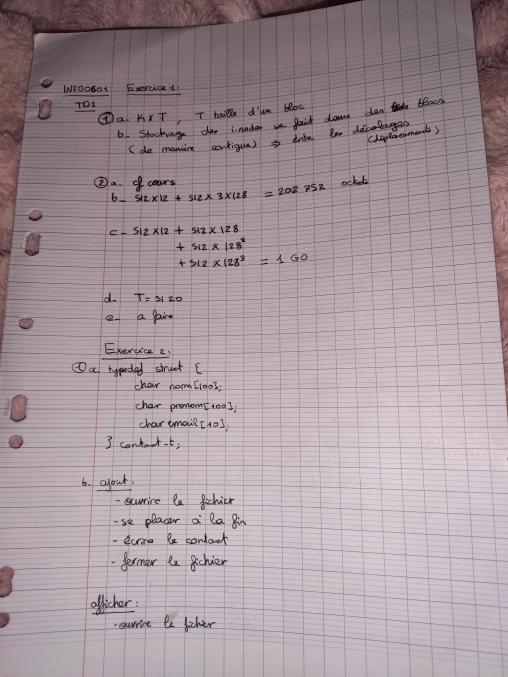 INFO0601 Exercice 1:
TD1
① a- K x T, T taille d'un bloc
b- Stockage des i.nodes se fait dans des blocs
(de manière contigue) ⇒ évite les décalages
(déplacements)
② a- cf cours
b- 512 x 12 + 512 x 3 x 128 = 202 752 octets
c- 512 x 12 + 512 x 128
+ 512 x 128²
+ 512 x 128³ = 1 GO
d- T =
e- a faire
Exercice 2:
① a. typedef struct {
char nom[100];
char prenom[100];
char email[40];
} contact_t;
b. ajout:
- ouvrire le fichier
- se placer à la fin
- écrire le contact
- fermer le fichier
afficher:
- ouvrire le fichier